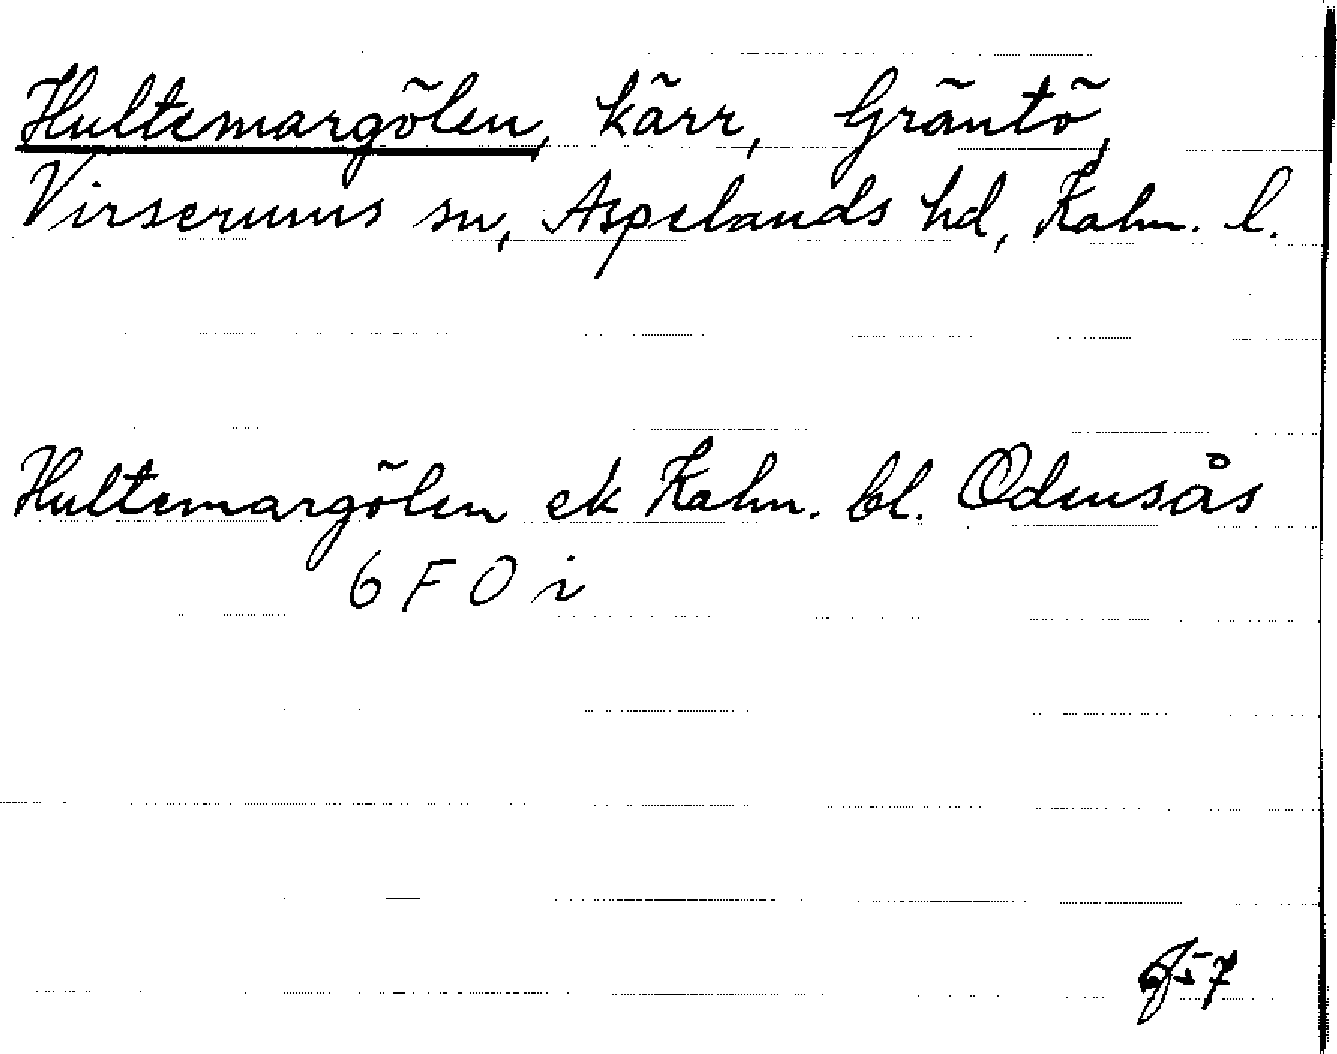 Hultemargölen, kärr, Gräntö,
Virserums sn, Aspelands hd, Kalm. l.
Hultemargölen ek Kalm. bl. Odensås
6 F 0 i
57